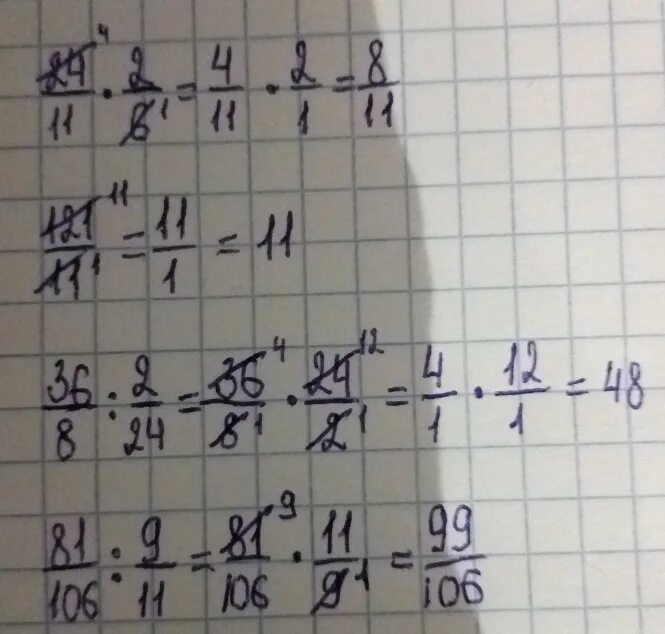 24̶⁴/11 · 2/6̶¹ = 4/11 · 2/1 = 8/11
1̶2̶1̶¹¹/1̶1̶¹ = 11/1 = 11
36/8 : 2/24 = 3̶6̶⁴/8̶¹ · 2̶4̶¹²/2̶¹ = 4/1 · 12/1 = 48
81/106 : 9/11 = 8̶1̶⁹/106 · 11/9̶¹ = 99/106